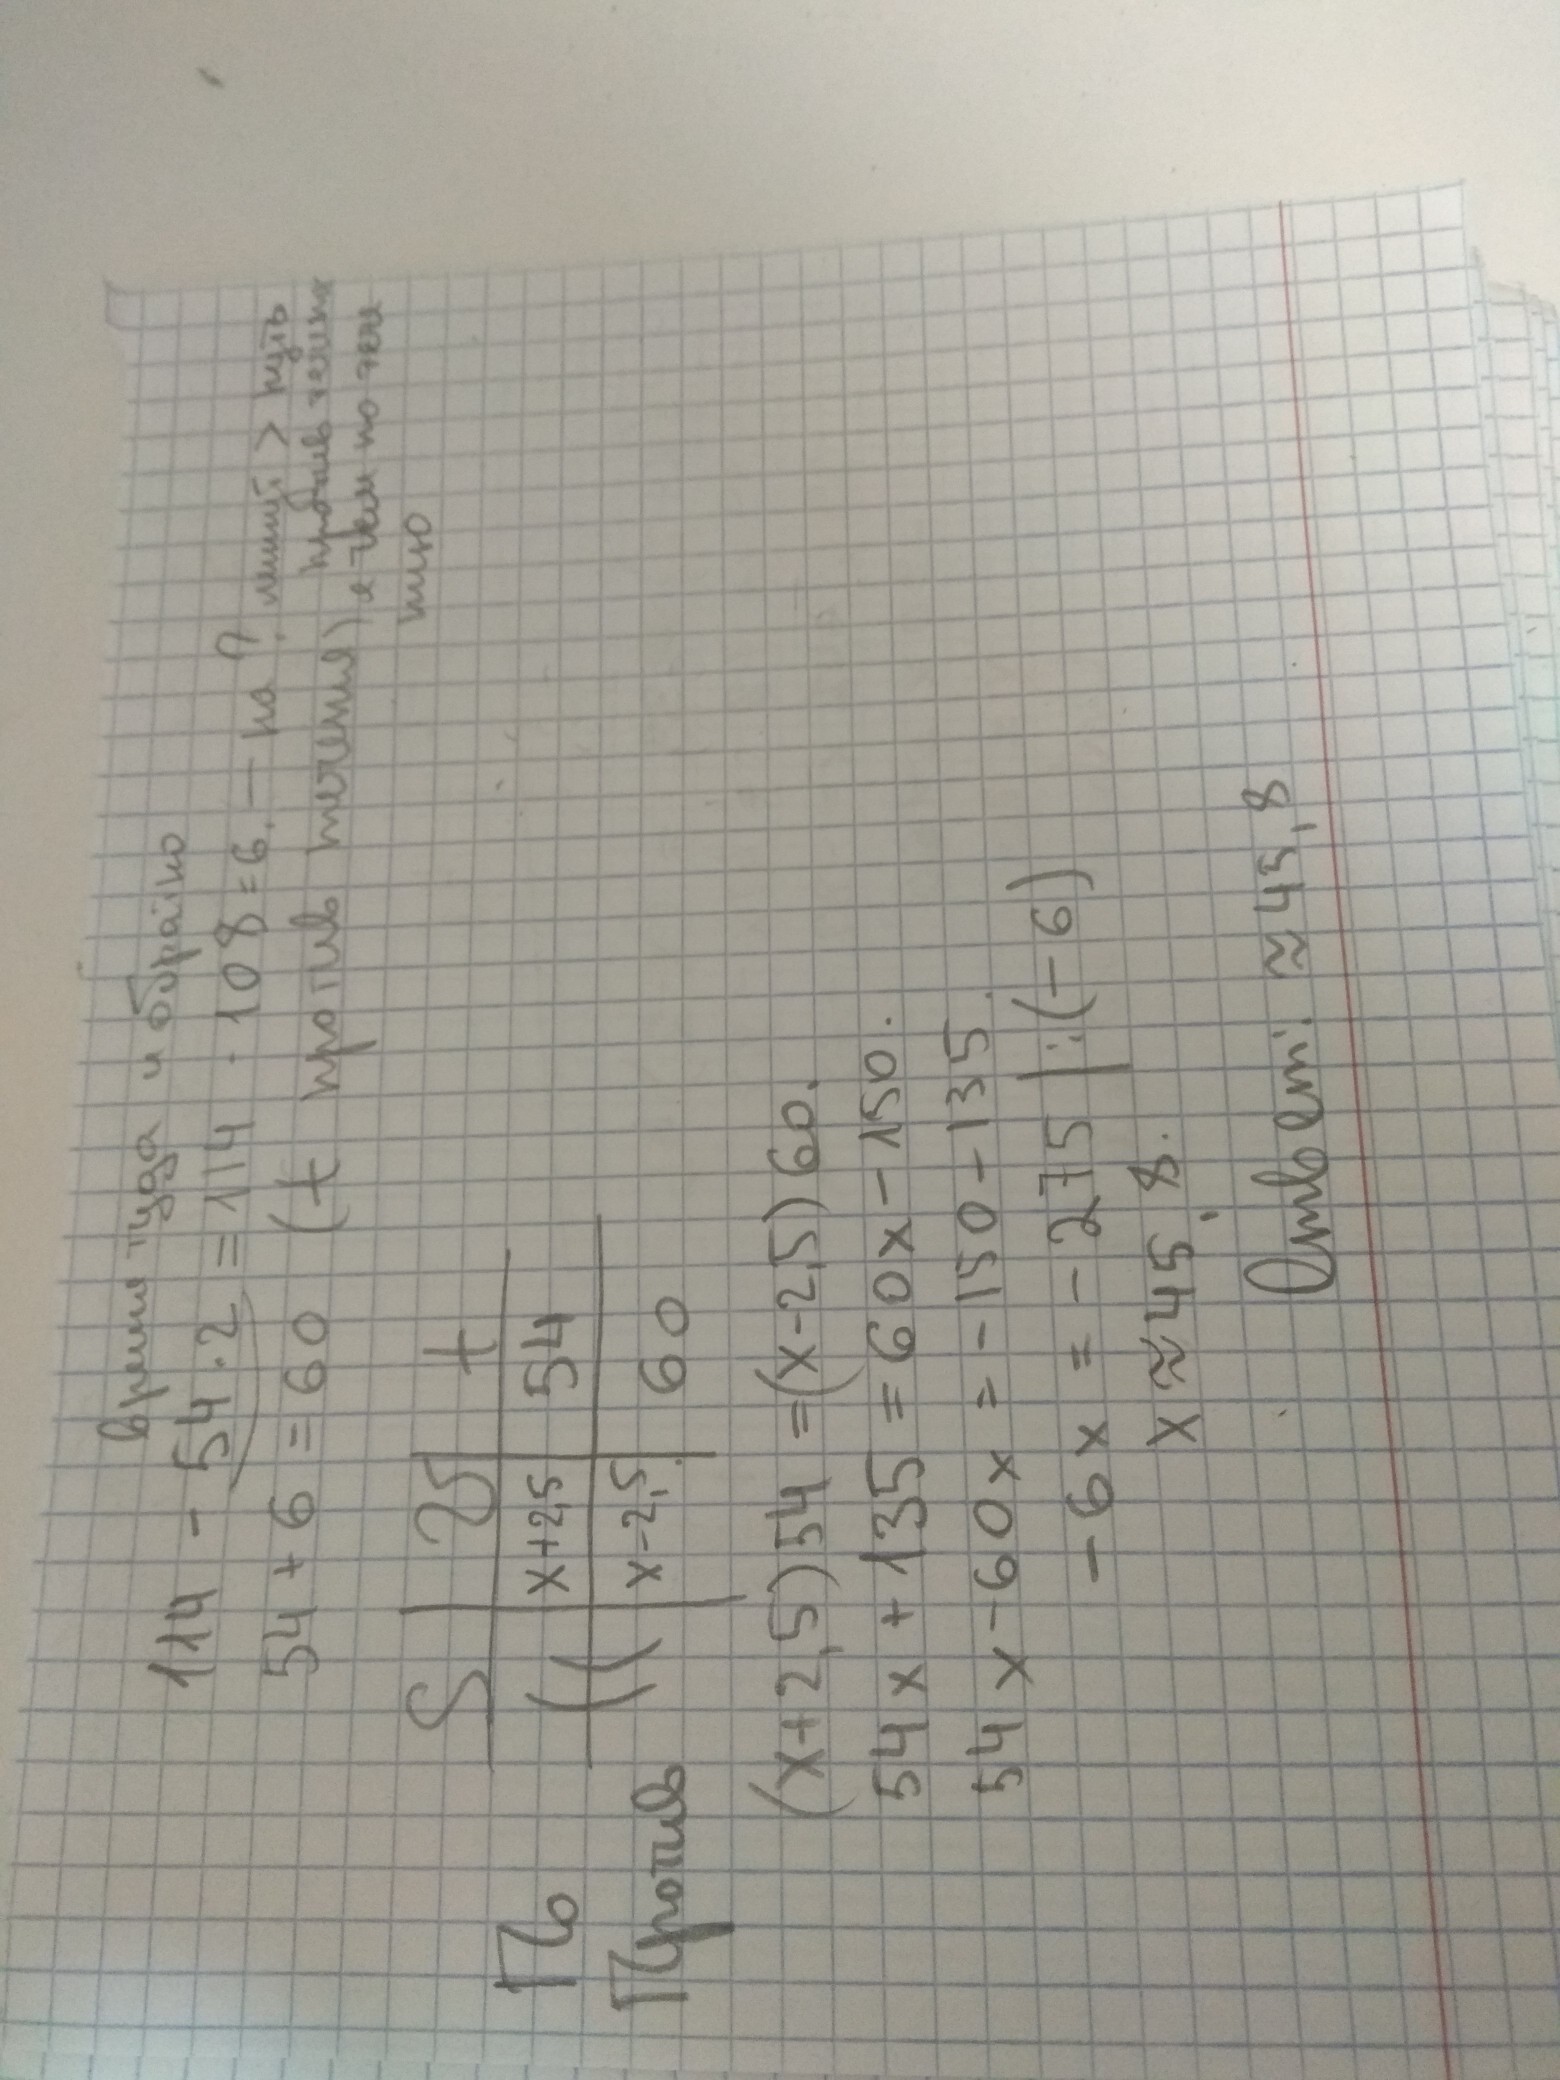 время туда и обратно
114 - 54 · 2 = 114 - 108 = 6. — на ?
54 + 6 = 60 (t против течения)
минут > путь
против течения
я чем по тече
нию
S υ t
По ( x+2,5 54
Против ( x-2,5 60
(x+2,5)54 = (x-2,5)60.
54x + 135 = 60x - 150.
54x - 60x = - 150 - 135
- 6x = - 275 |:(-6)
x ≈ 45,8.
Ответ: ≈ 45,8